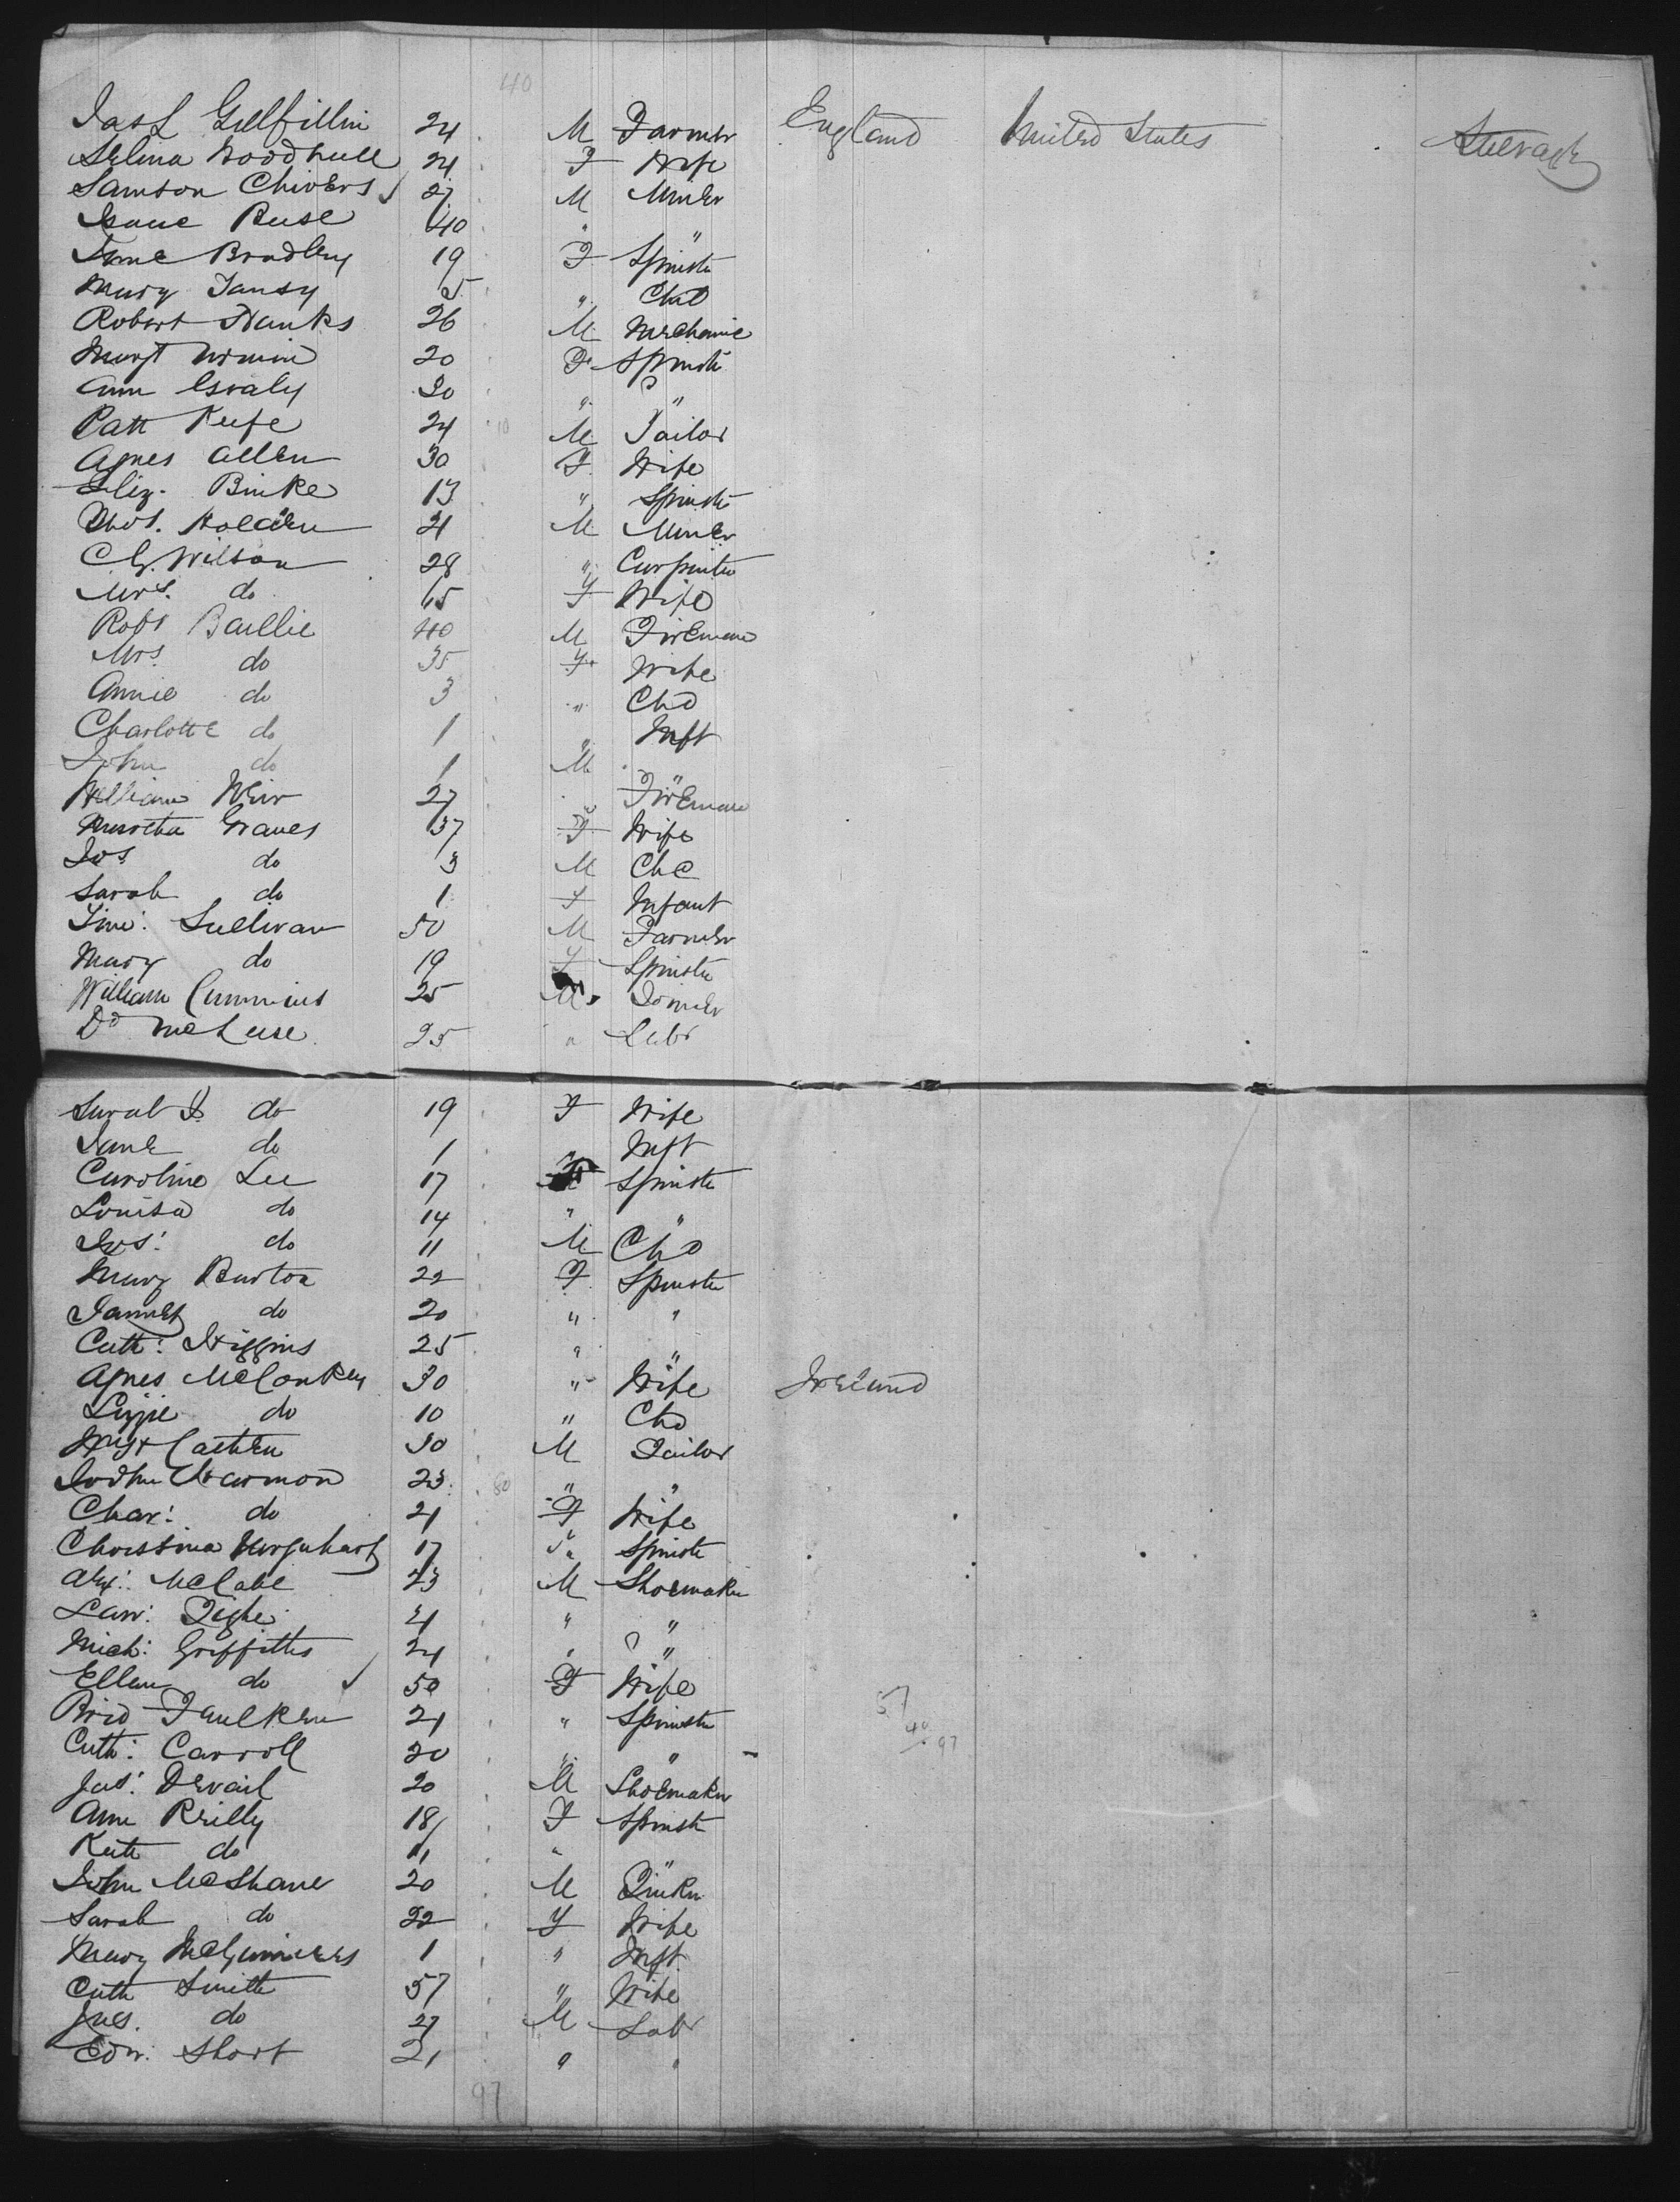 40
Jas L Gillfillin 24 M Farmer England United States Steerage
Selina Woodhull 24 F Wife
Samson Chivers ✓ 27 M Miner
Isaac Buse 40 " "
Jane Bradley 19 F Spinstr
Mary Tansy 5 " Chd
Robert Hanks 26 M Mechanic
Margt 20 F Spinstr
Ann 30 " "
Patt Keefe 24 10 M Tailor
Agnes Allen 30 F Wife
Eliz. Binke 13 " Spinstr
Thos. Holden 21 M Miner
Ch. Wilson 28 " Carpinter
Mrs. do 65 F Wife
Robt Baillie 40 M Fireman
Mrs. do 35 F Wife
Annie do 3 " Chd
Charlotte do 1 " Inft
John do 1 M "
William Weir 27 " Fireman
Martha Graves 37 F Wife
Jos do 3 M Chd
Sarah do 1 F Infant
Tim: Sullivan 50 M Farmer
Mary do 19 F Spinstr
William Cummins 25 M Joiner
Dd 25 " Labr
Sarah J. do 19 F Wife
Jane do 1 " Inft
Caroline Lee 17 F Spinstr
Louisa do 14 " "
Jos: do 11 M Chd
Mary Burton 22 F Spinstr
Jannet do 20 " "
Cath: Higgins 25 " "
Agnes McConkey 30 " Wife Ireland
Lizzie do 10 " Chd
30 M Tailor
John Harmon 23 80 " "
Char: do 21 F Wife
Christina Urquhart 17 " Spinstr
Alex: McCabe 23 M Shoemaker
Law: Tighe 21 " "
Mich: Griffiths 24 " "
Ellen do ✓ 50 F Wife
Brid Faulkner 21 " Spinstr 57
Cath: Carroll 20 " " 40 97
Jas: Devail 20 M Shoemaker
Ann Reilly 18 F Spinstr
Kate do 11 " "
John McShane 20 M
Sarah do 22 F Wife
Mary McGuinness 1 " Inft.
Cath Smith 57 " Wife
Jas. do 27 M Labr
Edw. Short 21 " "
97